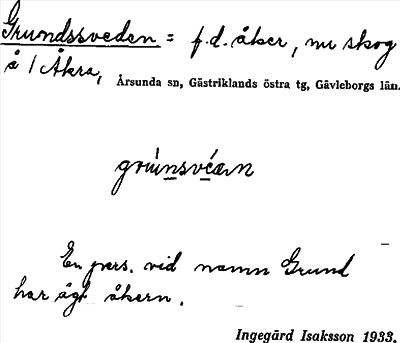 Grundssveden = f.d. åker, nu skog
å 1 Åkra, Årsunda sn, Gästriklands östra tg, Gävleborgs län.
En pers. vid namn Grund
har ägt åkern.
Ingegärd Isaksson 1933.